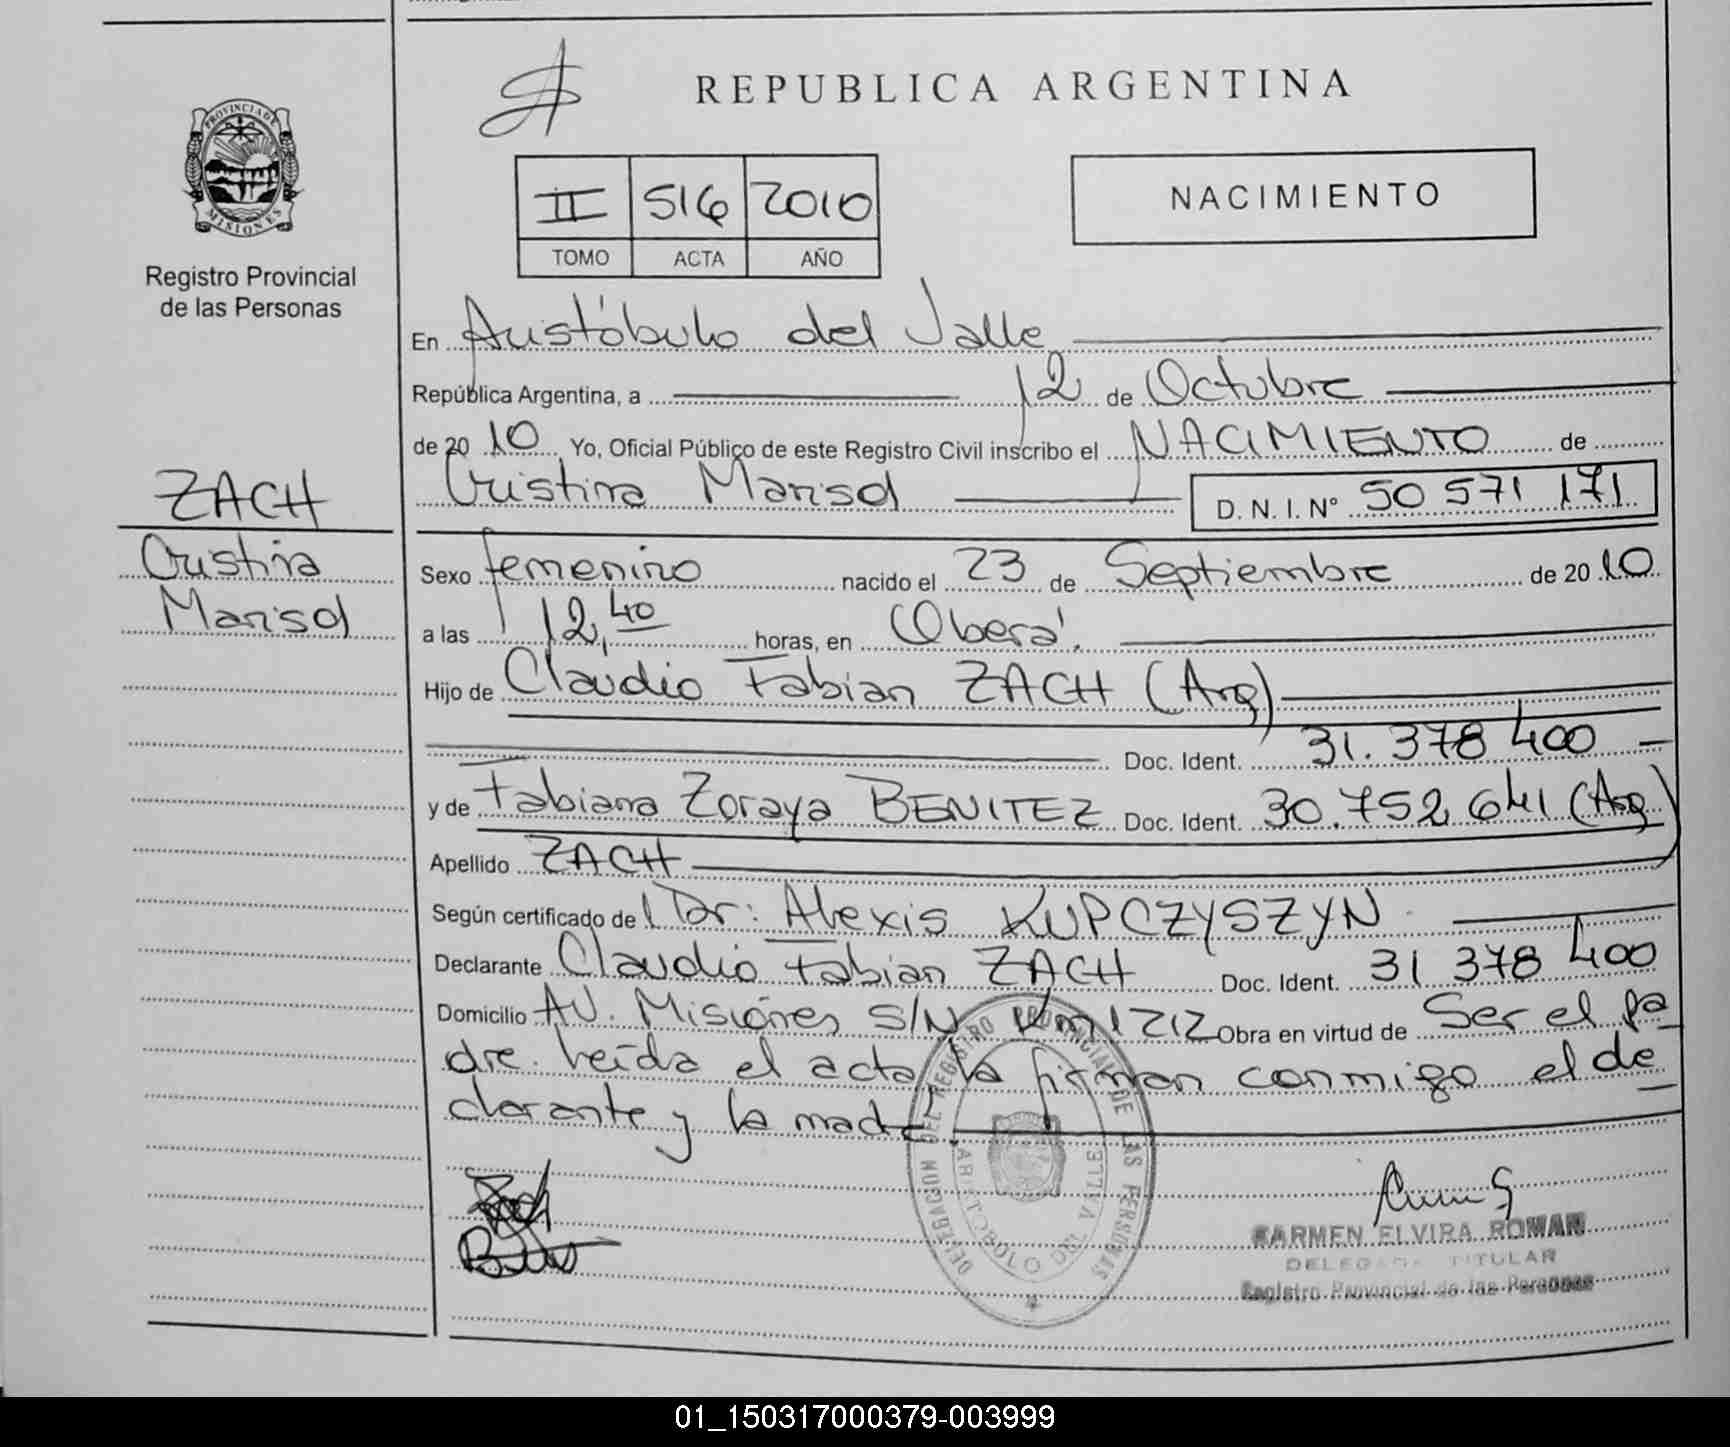 REPUBLICA ARGENTINA
PROVINCIA DE
MISIONES
Registro Provincial
de las Personas
II 516 2010
TOMO ACTA AÑO
NACIMIENTO
En Aristóbulo del Valle
República Argentina, a 12 de Octubre
de 2010 Yo, Oficial Público de este Registro Civil inscribo el NACIMIENTO de
Cristina Marisol D.N.I. Nº 50 571 171
ZACH
Cristina
Marisol
Sexo femenino nacido el 23 de Septiembre de 2010
a las 12,40 horas, en Oberá.
Hijo de Claudio Fabian ZACH (Arg)
Doc. Ident. 31.378 400
y de Fabiana Zoraya BENITEZ Doc. Ident. 30.752 641 (Arg)
Apellido ZACH
Según certificado de Dr: Alexis KUPCZYSZYN
Declarante Claudio Fabian ZACH Doc. Ident. 31 378 400
Domicilio AV. Misiones S/N Km 1212 Obra en virtud de Ser el pa
dre. leída el acta la firman conmigo el de
clarante y la madre.
DELEGACION DEL REGISTRO PROVINCIAL DE LAS PERSONAS
ARISTOBULO DEL VALLE
CARMEN ELVIRA ROMAN
DELEGADA TITULAR
Registro Provincial de las Personas
01_150317000379-003999